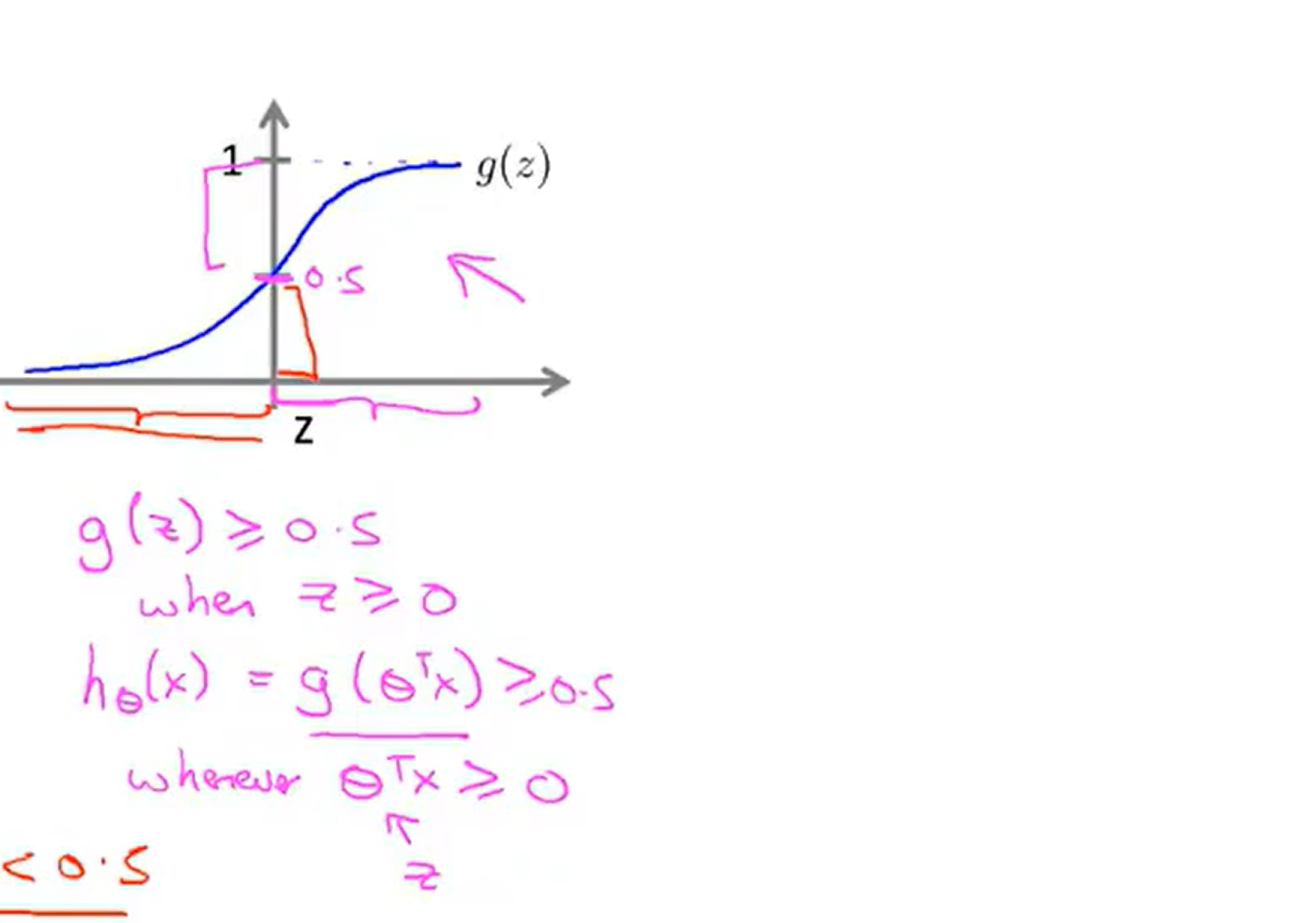 1
g(z)
0.5
z
g(z) ≥ 0.5
when z ≥ 0
hθ(x) = g(θᵀx) ≥ 0.5
whenever θᵀx ≥ 0
z
< 0.5